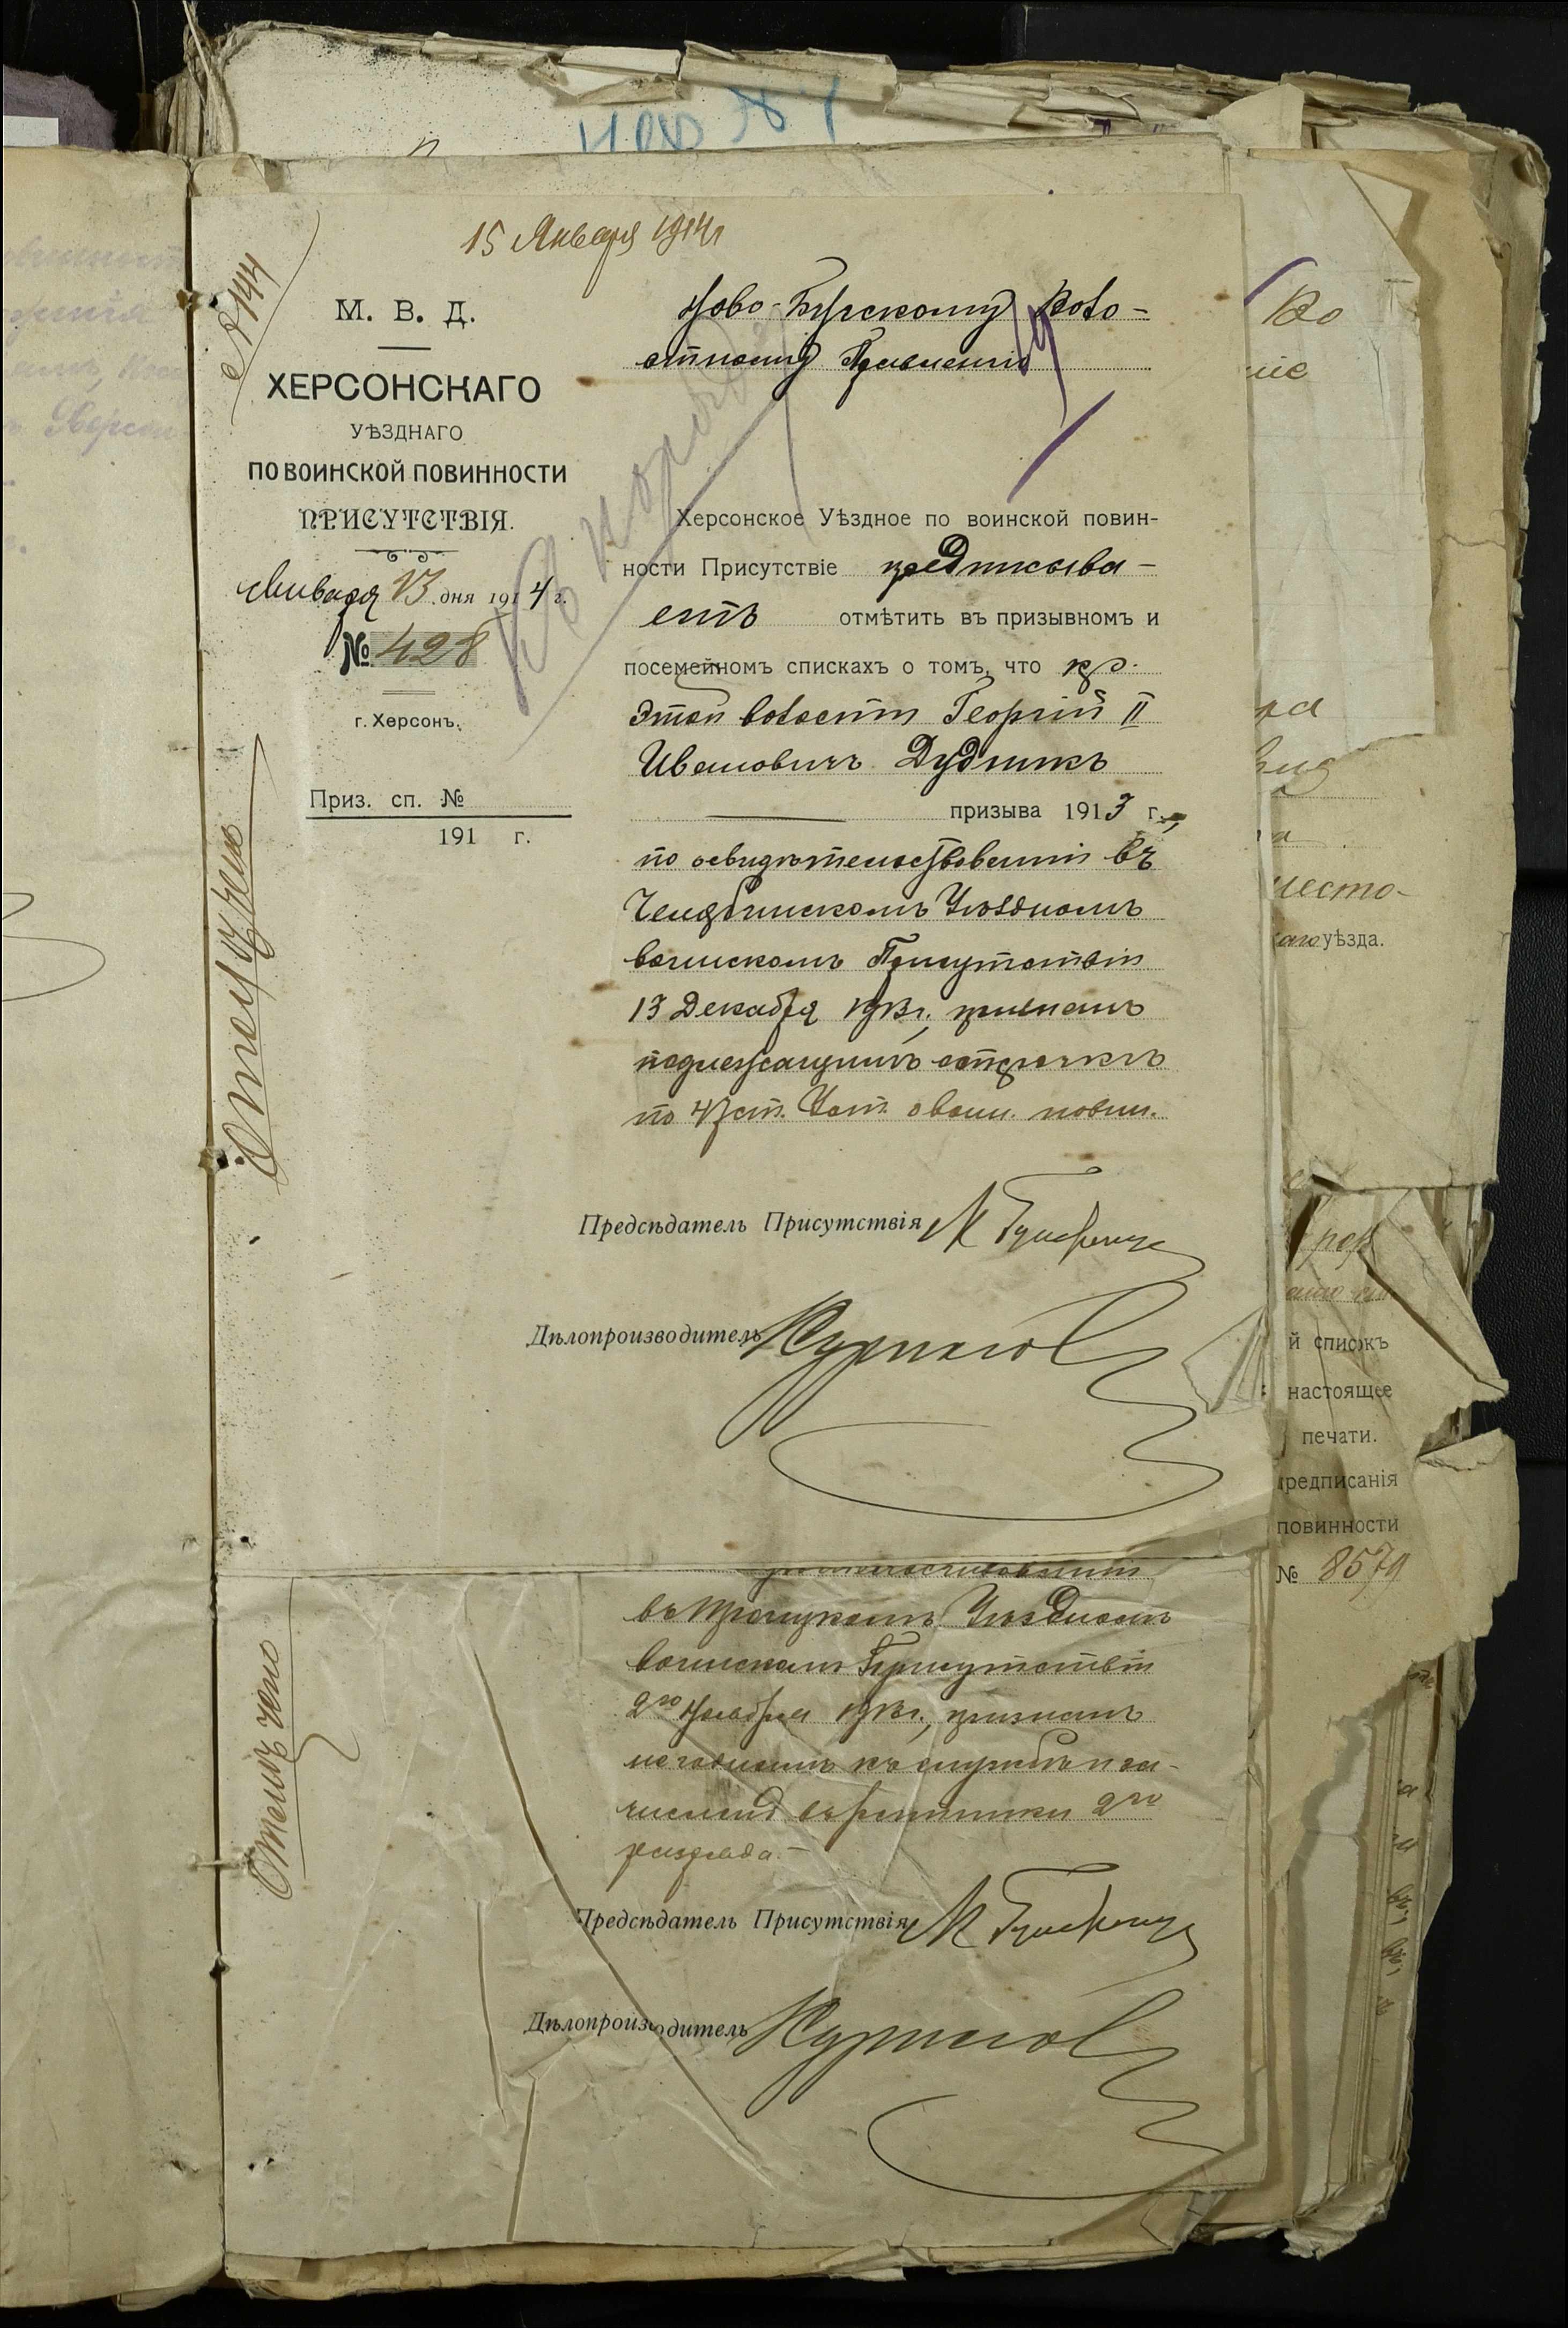 15 Января 1914 г
№ 144
М. В. Д.
ХЕРСОНСКАГО
УѢЗДНАГО
ПО ВОИНСКОЙ ПОВИННОСТИ
ПРИСУТСТВІЯ.
Января 13 дня 1914 г.
№ 428
г. Херсонъ.
Приз. сп. №
191 г.
Отмѣчено
Ново-Бугскому Воло-
стному Правленію
Херсонское Уѣздное по воинской повин-
ности Присутствіе предписыва-
етъ отмѣтить въ призывномъ и
посемейномъ спискахъ о томъ, что кр.
этой волости Георгій II
Ивановичъ Дудникъ
призыва 1913 г.,
по освидѣтельствованіи въ
Челябинскомъ Уѣздномъ
воинскомъ Присутствіи
13 Декабря 1913 г., признанъ
подлежащимъ отсрочкѣ
по 47 ст. Уст. о воин. повин.
Предсѣдатель Присутствія
Дѣлопроизводитель
въ Троицкомъ Уѣздномъ
воинскомъ Присутствіи
2го Ноября 1913 г., признанъ
негоднымъ къ службѣ и за-
численъ въ ратники 2го
разряда.
Отмѣчено
Предсѣдатель Присутствія
Дѣлопроизводитель
Во
ніе
место-
аго уѣзда.
й списокъ
настоящее
печати.
редписанія
повинности
№ 8579